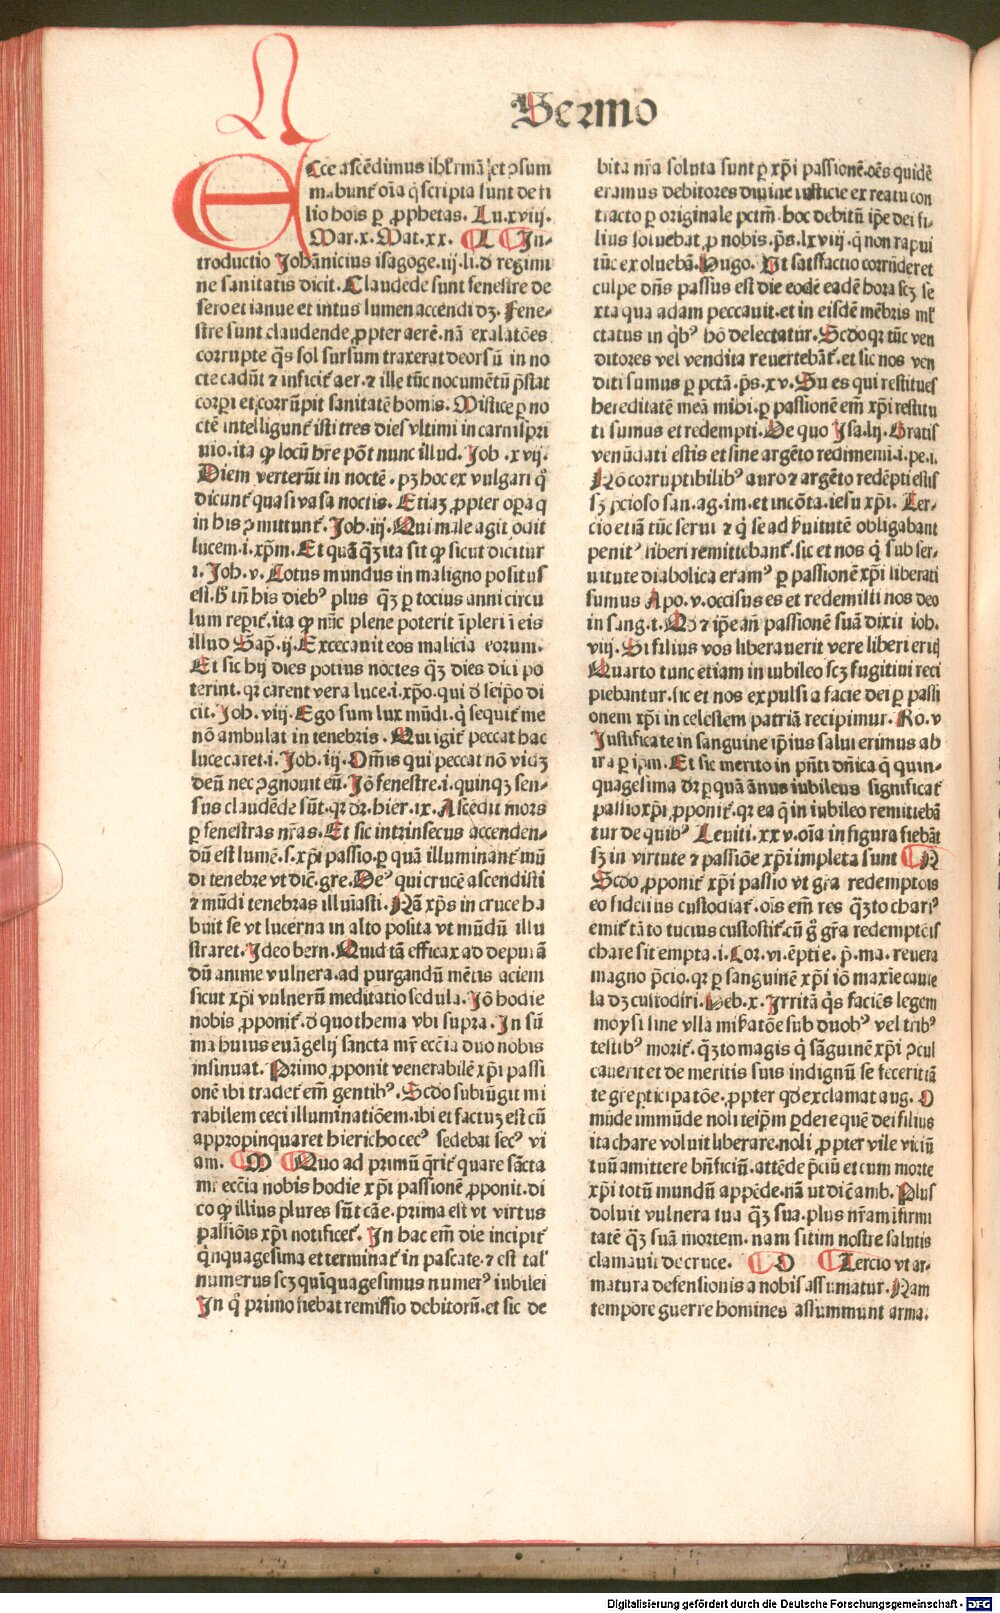 Sermo
Ecce ascēdimus ihr̄lrmā ⁊ et ↄsum
mabunt᷑ oīa q̄ scripta sunt de fi
lio hoīs ꝑ ꝓphetas. Lu.xviij.
Mar.x. Mat.xx. L In-
troductio Johānicius isagoge.iij.li.ď regimi
ne sanitatis dicit. Claudēde sunt fenestre de
sero et ianue et intus lumen accendi dꝫ. Fene-
stre sunt claudende ꝓpter aerē. nā exalatōes
corrupte q̄s sol sursum traxerat deorsū in no
cte cadūt ⁊ inficit᷑ aer. ⁊ ille tūc nocumētū p̄stat
corꝑi et corrūpit sanitatē homīs. Mistice ꝑ no
ctē intelligunt᷑ isti tres dies vltimi in carnispri
uio. ita ꝙ locū hr̄e pōt nunc illud. Job .xvij.
Diem verterūt in noctē. pꝫ hoc ex vulgari q̊
dicunt᷑ quasi vasa noctis. Etiaꝫ ꝓpter oꝑa q̄
in his ↄmittunt᷑. Job.iij. Qui male agit odit
lucem.i.xp̄m. Et quāqꝫ ita sit ꝙ sicut dicitur
i. Joh.v. Totus mundus in maligno positus
est. h̄ tn̄ his diebꝰ plus qꝫ ꝑ tocius anni circu
lum reꝑit᷑. ita ꝙ nūc plene poterit īpleri ī eis
illud Sap̄.ij. Excecauit eos malicia eorum.
Et sic hij dies potius noctes qꝫ dies dici po
terint. qꝛ carent vera luce.i.xp̄o. qui ď seip̄o di
cit. Joh.viij. Ego sum lux mūdi. q̇ sequit᷑ me
nō ambulat in tenebris. Qui igit᷑ peccat hac
luce caret.i. Joh.iij. Om̄is qui peccat nō vidꝫ
deū nec ↄgnouit eū. Jō fenestre.i.quinqꝫ sen-
sus claudēde sūt. qꝛ dr̄. hier.ix. Ascēdit mors
ꝑ fenestras nr̄as. Et sic intrinsecus accenden-
dū est lumē.s.xp̄i passio. ꝑ quā illuminant᷑ mū
di tenebre vt dic̄.gre. Deꝰ qui crucē ascendisti
⁊ mūdi tenebras illuīasti. Nā xp̄s in cruce ha
buit se vt lucerna in alto posita vt mūdū illu
straret. Ideo bern. Quid tā efficax ad depurā
dū anime vulnera. ad purgandū mētis aciem
sicut xp̄i vulnerū meditatio sedula. Jō hodie
nobis ꝓponit᷑. ď quo thema vbi supra. In sū
ma huius euāgelij sancta mr̄ ecc̄ia duo nobis
insinuat. Primo ꝓponit venerabilē xp̄i passi
onē ibi tradet᷑ em̄ gentibꝰ. Scd̄o subiūgit mi
rabilem ceci illuminatiōem. ibi et factuꝫ est cū
appropinquaret hiericho cecꝰ sedebat secꝰ vi
am. M Quo ad primū q̄rit᷑ quare sācta
mr̄ ecc̄ia nobis hodie xp̄i passionē ꝓponit. di
co ꝙ illius plures sūt cāe. prima est vt virtus
passiōis xp̄i notificet᷑. In hac em̄ die incipit᷑
q̇nquagesima et terminat᷑ in pascate. ⁊ est tal᷑
numerus scꝫ quīquagesimus numerꝰ iubilei
In q̊ primo fiebat remissio debitorū. et sic de
bita nr̄a soluta sunt ꝑ xp̄i passionē. oēs quidē
eramus debitores diuine iusticie ex reatu con
tracto ꝑ originale pctm̄. hoc debitū ip̄e dei fi-
lius soluebat ꝓ nobis. p̄s.lxviij. q̄ non rapui
tūc exoluebā. Hugo. Ut satisfactio corrn̄deret
culpe dn̄s passus est die eodē eadē hora scꝫ se
xta qua adam peccauit. et in eisdē mēbris mr̄
ctatus in q̇bꝰ hō delectatur. Scd̄o qꝛ tūc ven
ditores vel vendita reuertebāt᷑. et sic nos ven
diti sumus ꝑ pctā. p̄s.xv. Tu es qui restitues
hereditatē meā mihi. ꝑ passionē em̄ xp̄i restitu
ti sumus et redempti. De quo Isa.lij. Gratis
venūdati estis et sine argēto redimemi. i.pe.i.
Nō corruptibilibꝰ auro ⁊ argēto redēpti estis
sꝫ p̄cioso san.ag.im.et incōta.iesu xp̄i. Ter-
cio etiā tūc serui ⁊ q̇ se ad ẜuitutē obligabant
penitꝰ liberi remittebant᷑. sic et nos q̇ sub ser-
uitute diabolica eramꝰ ꝑ passionē xp̄i liberati
sumus Apo.v. occisus es et redemisti nos deo
in sang.t. Qd̄ ⁊ ip̄e an̄ passionē suā dixit ioh.
viij. Si filius vos liberauerit vere liberi eritis
Quarto tunc etiam in iubileo scꝫ fugitiui reci
piebantur. sic et nos expulsi a facie dei ꝑ passi
onem xp̄i in celestem patriā recipimur. Ro.v
Justificate in sanguine ip̄ius salui erimus ab
ira ꝑ ip̄m. Et sic merito in pn̄ti dn̄ica q̄ quin-
quagesima dr̄ ꝑ quā ānus iubileus significat᷑
passio xp̄i ꝓponit᷑. qꝛ ea q̄ in iubileo remittebā
tur de quibꝰ Leuiti.xxv. oīa in figura fiebāt
sꝫ in virtute ⁊ passiōe xp̄i impleta sunt N
Scd̄o ꝓponit᷑ xp̄i passio vt gr̄a redemptōis
eo fidelius custodiat᷑. oīs em̄ res qꝫto chariꝰ
emit᷑ tāto tucius custodit᷑. cū g̊ gr̄a redemptōis
chare sit empta. i. Cor.vi. ēpti e. p̄.ma. reuera
magno p̄cio. qꝛ ꝑ sanguinē xp̄i iō maxīe caute
la dꝫ custodiri. Heb.x. Irritā q̇s faciēs legem
moysi sine vlla mīẜatōe sub duobꝰ vel tribꝰ
testibꝰ morit᷑. qꝫto magis q̇ sāguinē xp̄i ↄcul
cauerit et de meritis suis indignū se fecerit iā
te gre ꝑticipatōe. ꝓpter qd̄ exclamat aug. O
mūde immūde noli teip̄m ꝑdere quē dei filius
ita chare voluit liberare. noli ꝓpter vile viciū
tuū amittere bn̄ficiū. attēde p̄ciū et cum morte
xp̄i totū mundū appēde. nā ut dic̄ amb. Plus
doluit vulnera tua qꝫ sua. plus nr̄am ifirmi
tatē qꝫ suā mortem. nam sitim nostre salutis
clamauit de cruce. O Tercio vt ar-
matura defensionis a nobis assumatur. Nam
tempore guerre homines assummunt arma.
Digitalisierung gefördert durch die Deutsche Forschungsgemeinschaft - DFG